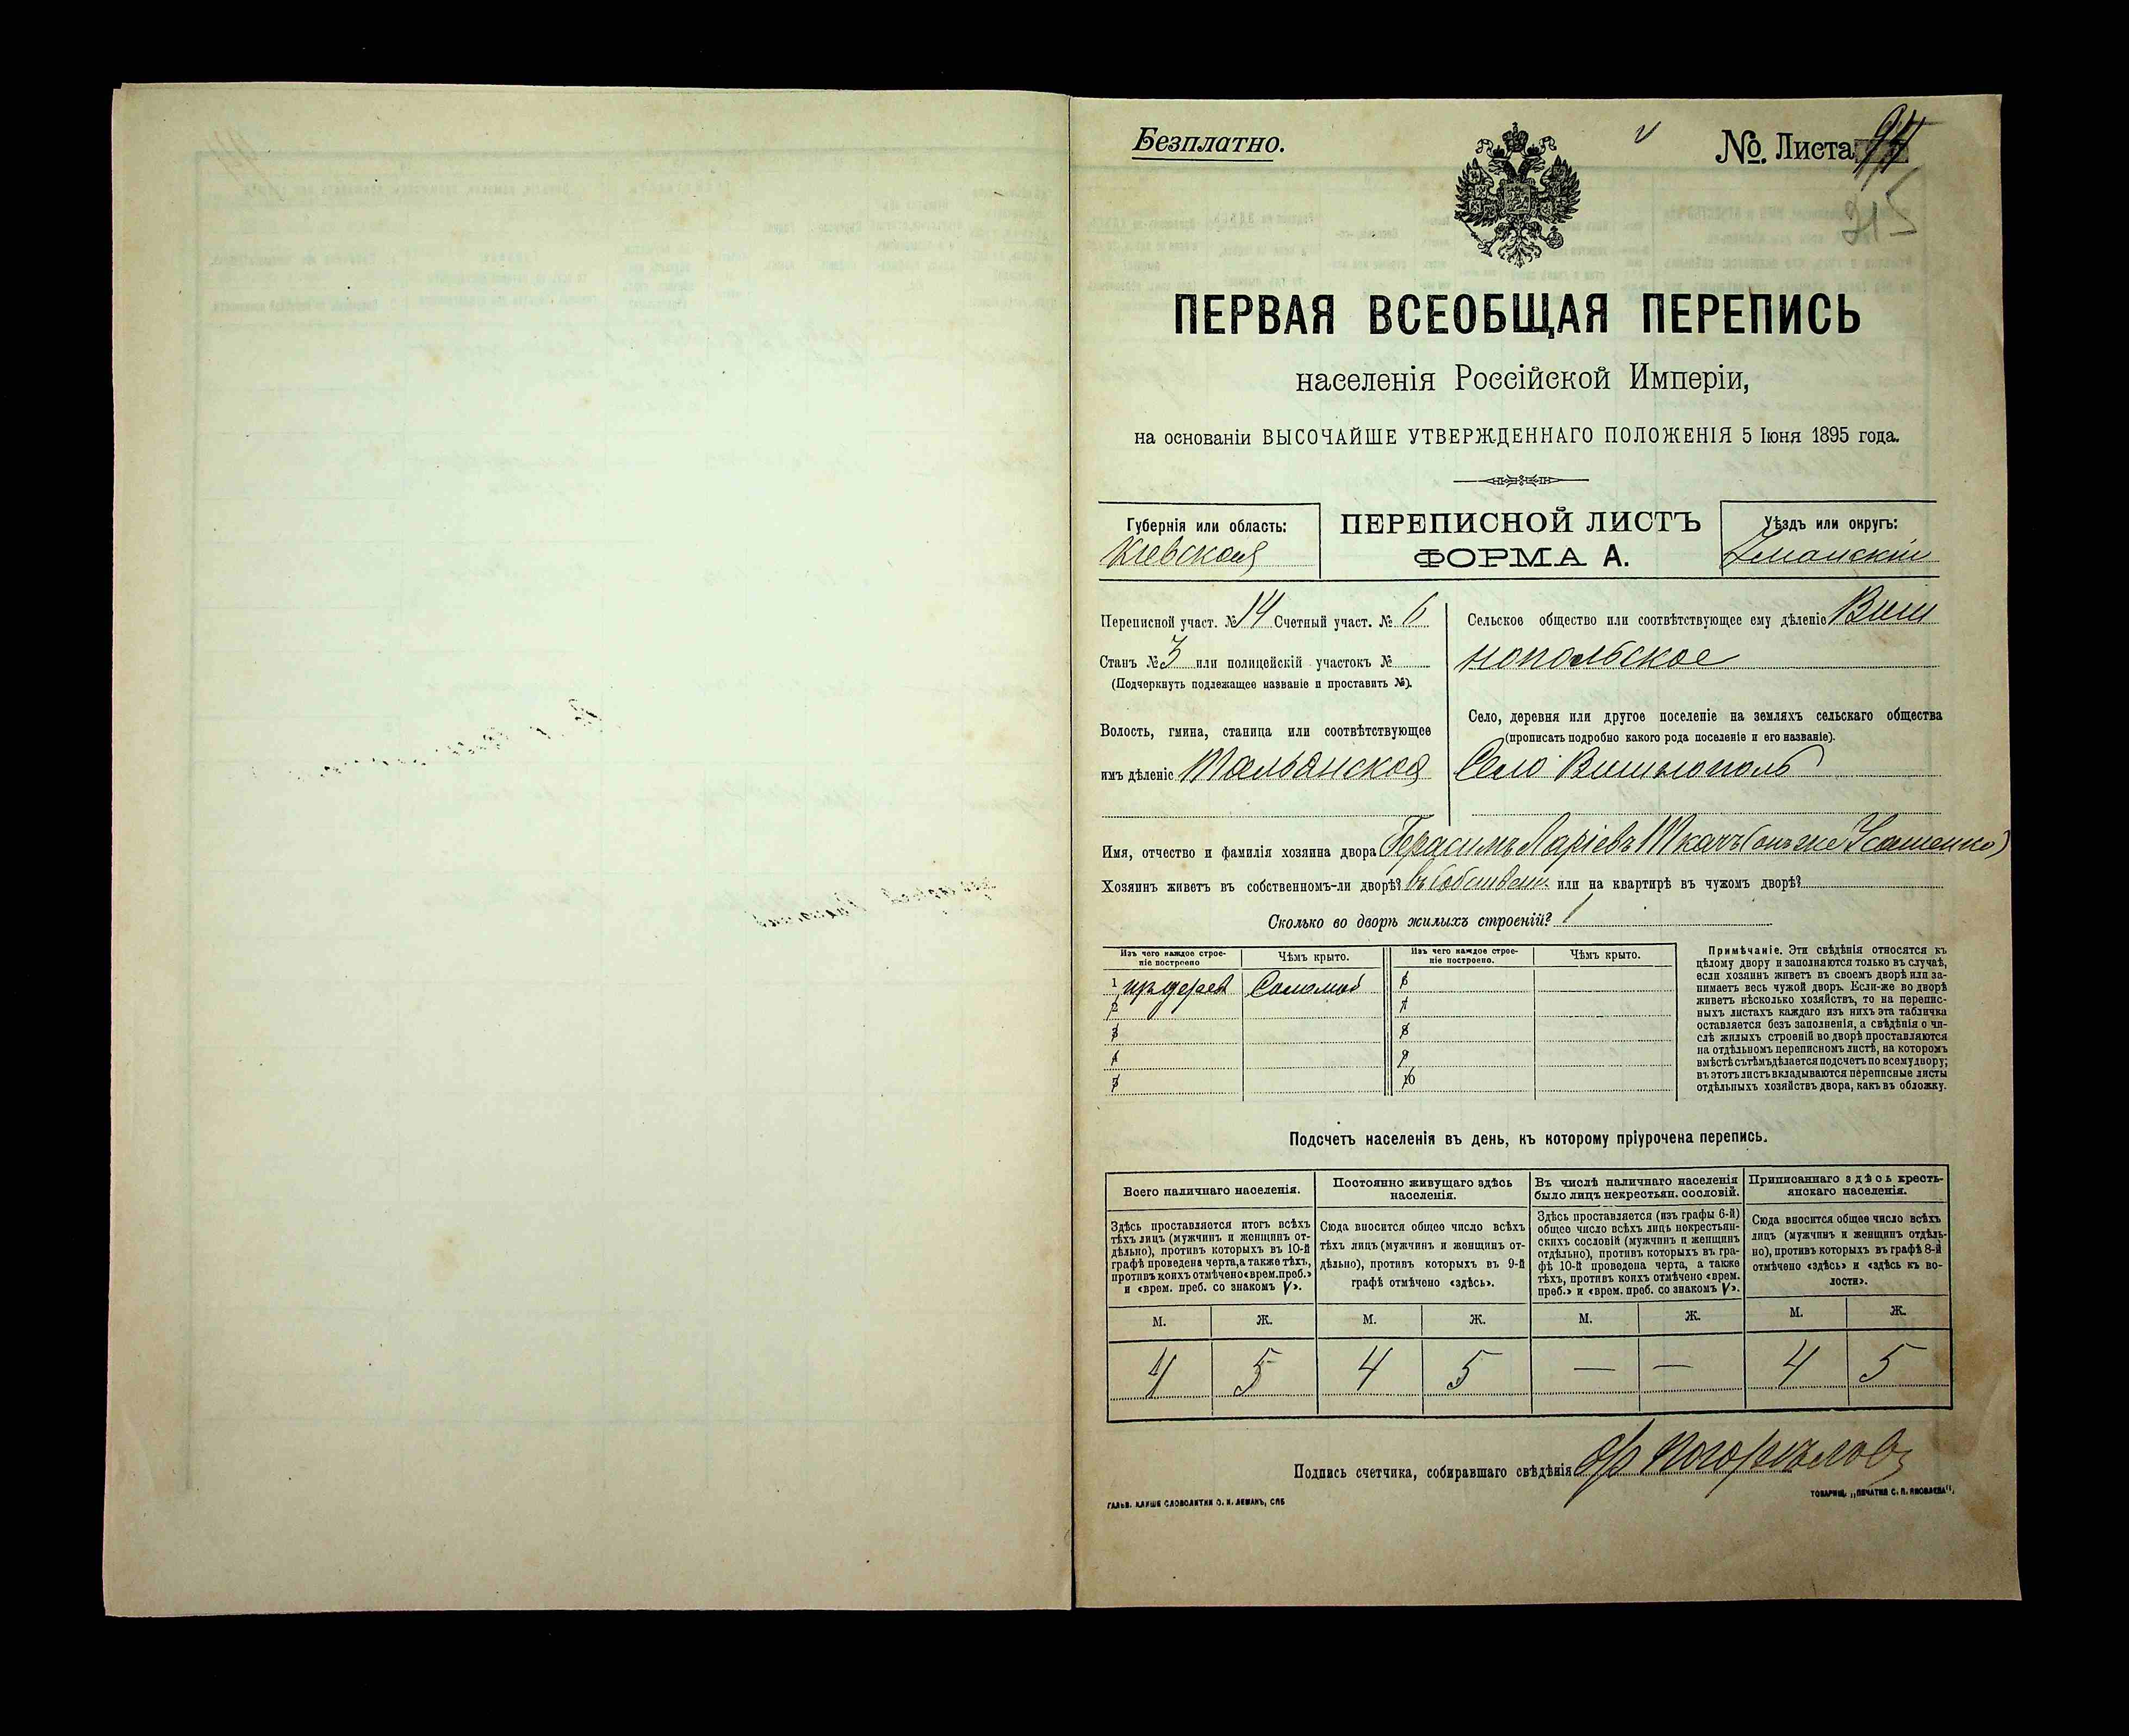 Безплатно.
№. Листа
215
ПЕРВАЯ ВСЕОБЩАЯ ПЕРЕПИСЬ
населенія Россійской Имперіи,
на основаніи ВЫСОЧАЙШЕ УТВЕРЖДЕННАГО ПОЛОЖЕНІЯ 5 Іюня 1895 года.
Губернія или область:
Кіевская
ПЕРЕПИСНОЙ ЛИСТЪ
ФОРМА А.
Уѣздъ или округъ:
Уманскій
Переписной участ. № 14 Счетный участ. № 6
Станъ № 3 или полицейскій участокъ №
(Подчеркнуть подлежащее названіе и проставить №).
Волость, гмина, станица или соотвѣтствующее
имъ дѣленіе Тальянская
Сельское общество или соотвѣтствующее ему дѣленіе Виш
нопольское
Село, деревня или другое поселеніе на земляхъ сельскаго общества
(прописать подробно какого рода поселеніе и его названіе).
Село Вишнополь
Имя, отчество и фамилія хозяина двора Герасимъ Ларіевъ Ткачъ (онъ же Усатенко)
Хозяинъ живетъ въ собственномъ-ли дворѣ? въ собствен. или на квартирѣ въ чужомъ дворѣ?
Сколько во дворѣ жилыхъ строеній? 1
Изъ чего каждое строе-
ніе построено
Чѣмъ крыто.
Изъ чего каждое строе-
ніе построено.
Чѣмъ крыто.
1 изъ дерева Соломой
2
3
4
5
6
7
8
9
10
Примѣчаніе. Эти свѣдѣнія относятся къ
цѣлому двору и заполняются только въ случаѣ,
если хозяинъ живетъ въ своемъ дворѣ или за-
нимаетъ весь чужой дворъ. Если-же во дворѣ
живетъ нѣсколько хозяйствъ, то на перепис-
ныхъ листахъ каждаго изъ нихъ эта табличка
оставляется безъ заполненія, а свѣдѣнія о чи-
слѣ жилыхъ строеній во дворѣ проставляются
на отдѣльномъ переписномъ листѣ, на которомъ
вмѣстѣ съ тѣмъ дѣлается подсчетъ по всему двору;
въ этотъ листъ вкладываются переписные листы
отдѣльныхъ хозяйствъ двора, какъ въ обложку.
Подсчетъ населенія въ день, къ которому пріурочена перепись.
Всего наличнаго населенія.
Здѣсь проставляется итогъ всѣхъ
тѣхъ лицъ (мужчинъ и женщинъ от-
дѣльно), противъ которыхъ въ 10-й
графѣ проведена черта, а также тѣхъ,
противъ коихъ отмѣчено «врем. преб.»
и «врем. преб. со знакомъ V».
Постоянно живущаго здѣсь
населенія.
Сюда вносится общее число всѣхъ
тѣхъ лицъ (мужчинъ и женщинъ от-
дѣльно), противъ которыхъ въ 9-й
графѣ отмѣчено «здѣсь».
Въ числѣ наличнаго населенія
было лицъ некрестьян. сословій.
Здѣсь проставляется (изъ графы 6-й)
общее число всѣхъ лицъ некрестьян-
скихъ сословій (мужчинъ и женщинъ
отдѣльно), противъ которыхъ въ гра-
фѣ 10-й проведена черта, а также
тѣхъ, противъ коихъ отмѣчено «врем.
преб.» и «врем. преб. со знакомъ V».
Приписаннаго здѣсь кресть-
янскаго населенія.
Сюда вносится общее число всѣхъ
лицъ (мужчинъ и женщинъ отдѣль-
но), противъ которыхъ въ графѣ 8-й
отмѣчено «здѣсь» и «здѣсь къ во-
лости».
М. Ж. М. Ж. М. Ж. М. Ж.
4 5 4 5 — — 4 5
Подпись счетчика, собиравшаго свѣдѣнія Погорѣловъ
ГАЛЬВ. КЛИШЕ СЛОВОЛИТНИ О. И. ЛЕМАНЪ, СПБ
ТОВАРИЩ. „ПЕЧАТНЯ С. П. ЯКОВЛЕВА".